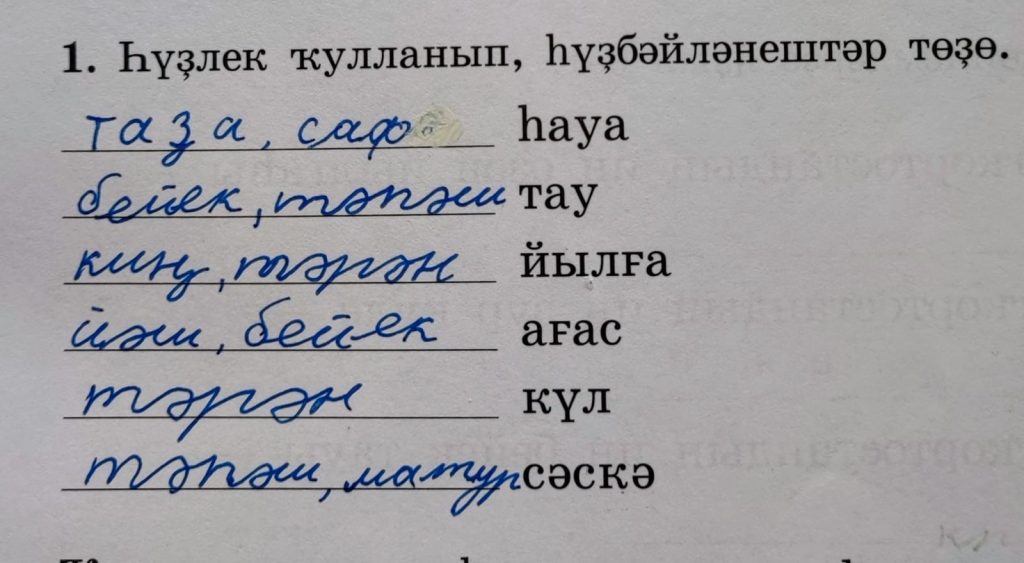 1. Һүҙлек ҡулланып, һүҙбәйләнештәр төҙө.
таҙа, саф һауа
бейек, тәпәш тау
киң, тәрән йылға
йәш, бейек ағас
тәрән күл
тәпәш, матур сәскә